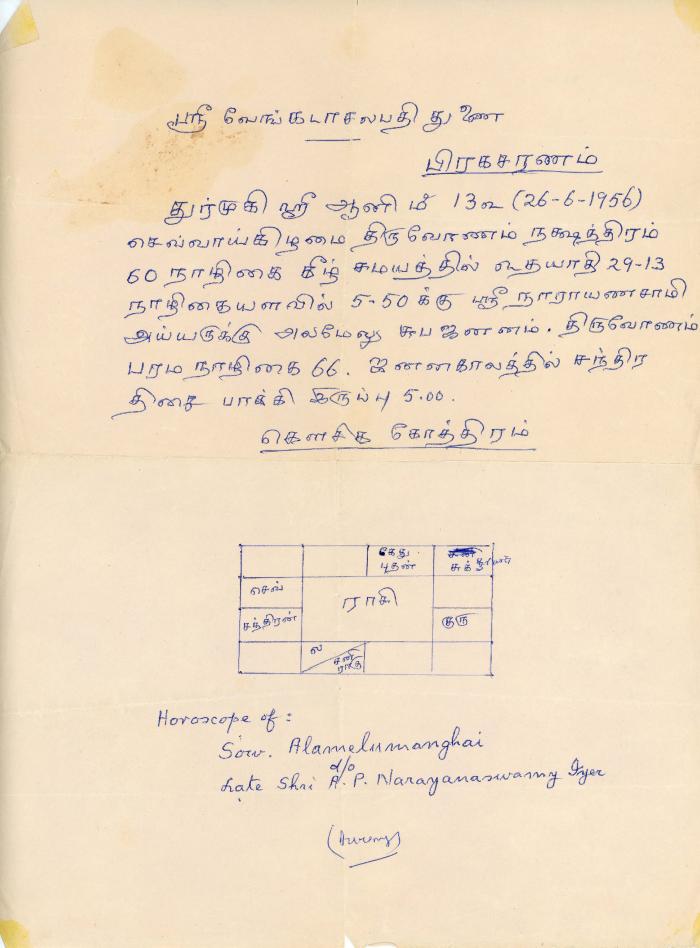 ஸ்ரீ வேங்கடாசலபதி துணை
பிரகசரணம்
துர்முகி ஸ்ரீ ஆனி மீ 13 உ (26-6-1956)
செவ்வாய்கிழமை திருவோணம் நக்ஷத்திரம்
60 நாழிகை கீழ் சமயத்தில் உதயாதி 29-13
நாழிகையளவில் 5-50 க்கு ஸ்ரீ நாராயணசாமி
அய்யருக்கு அலமேலு சுபஜனனம். திருவோணம்
பரம நாழிகை 66. ஜனனகாலத்தில் சந்திர
திசை பாக்கி இருப்பு 5.00.
கௌசிக கோத்திரம்
கேது
புதன்
சுக் சூரியன்
செவ்
ராசி
சந்திரன்
குரு
ல
சனி
ராகு
Horoscope of :
Sow. Alamelumanghai
d/o
Late Shri A. P. Narayanaswamy Iyer